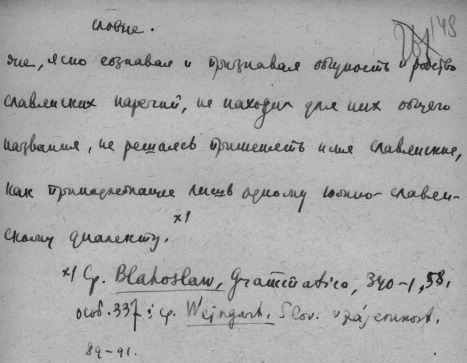 словие.
148
ние, ясно сознавая и признавая общность и родство
славянских наречий, не находил для них общего
названия, не решаясь применять имя славянские,
как принадлежащее лишь одному южно-славян-
скому диалекту. x)
x) Ср. Blahoslaw, Grammatica, 340-1, 58,
особ. 337; ср. Weingart, Slov. vzájemnost,
89-91.